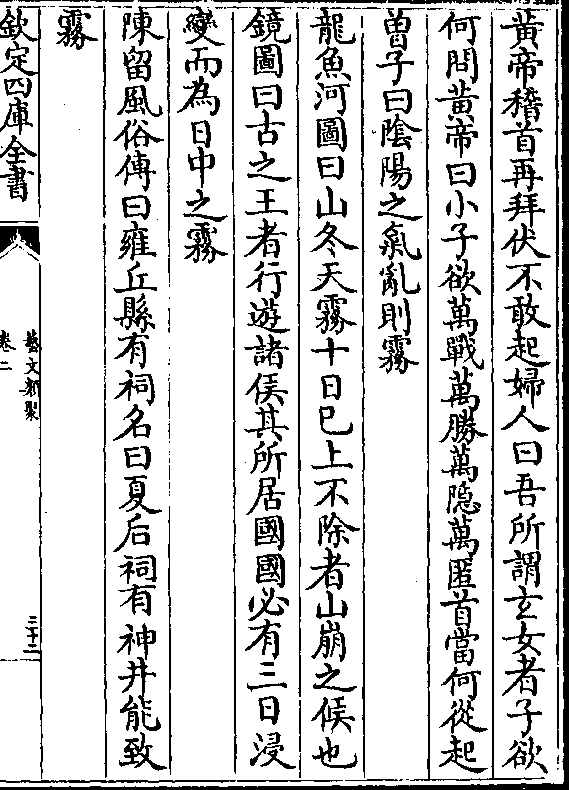 黃帝稽首再拜伏不敢起婦人曰吾所謂玄女者子欲
何問黃帝曰小子欲萬戰萬勝萬隠萬匿首當何從起
曽子曰隂陽之氣亂則霧
龍魚河圖曰山冬天霧十日已上不除者山崩之候也
鏡圖曰古之王者行遊諸侯其所居國國必有三日浸
變而為日中之霧
陳留風俗傳曰雍丘縣有祠名曰夏后祠有神井能致
霧
欽定四庫全書
藝文類聚
卷二
三十二